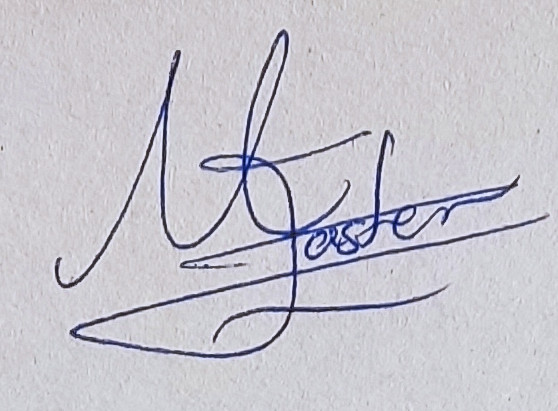 M Foster